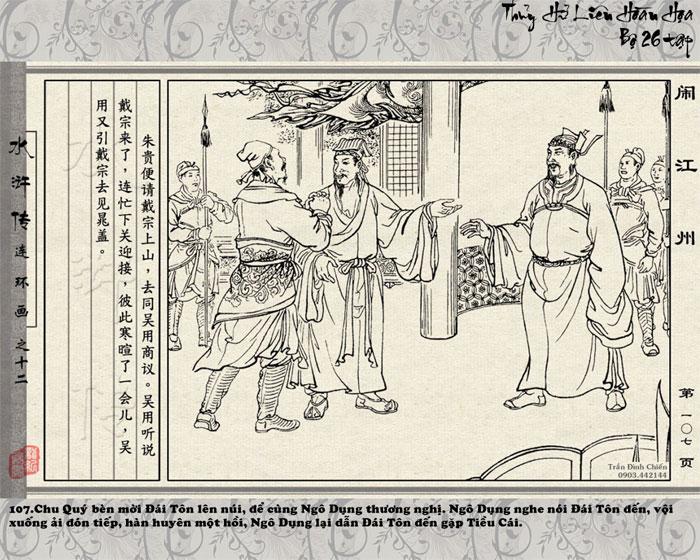 Thủy Hử Liên Hoàn Họa
Bộ 26 tập
闹江州
朱贵便请戴宗上山，去同吴用商议。吴用听说
戴宗来了，连忙下关迎接，彼此寒暄了一会儿，吴
用又引戴宗去见晁盖。
水浒传连环画之十二
第一〇七页
Trần Đình Chiến
0903.442144
107.Chu Quý bèn mời Đái Tôn lên núi, để cùng Ngô Dụng thương nghị. Ngô Dụng nghe nói Đái Tôn đến, vội
xuống ải đón tiếp, hàn huyên một hồi, Ngô Dụng lại dẫn Đái Tôn đến gặp Tiều Cái.